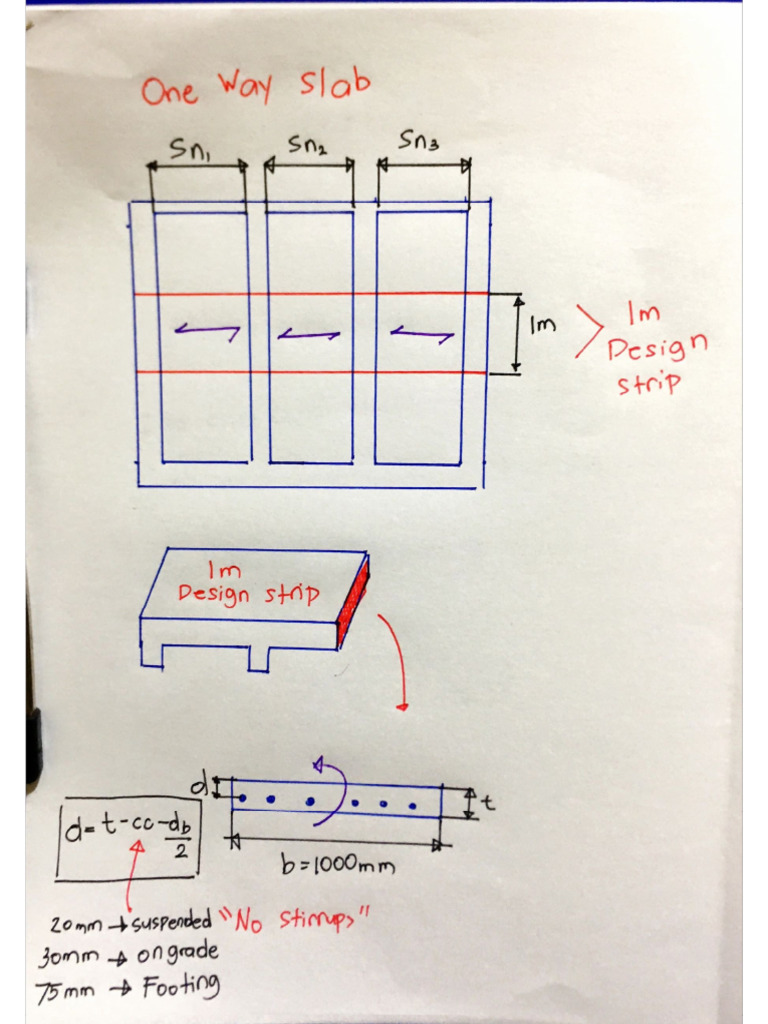 One Way Slab
Sn1 Sn2 Sn3
1m
1m
Design
strip
1m
Design strip
d
t
b=1000mm
d= t-cc-db/2
20mm → suspended "No stirrups"
30mm → on grade
75mm → Footing